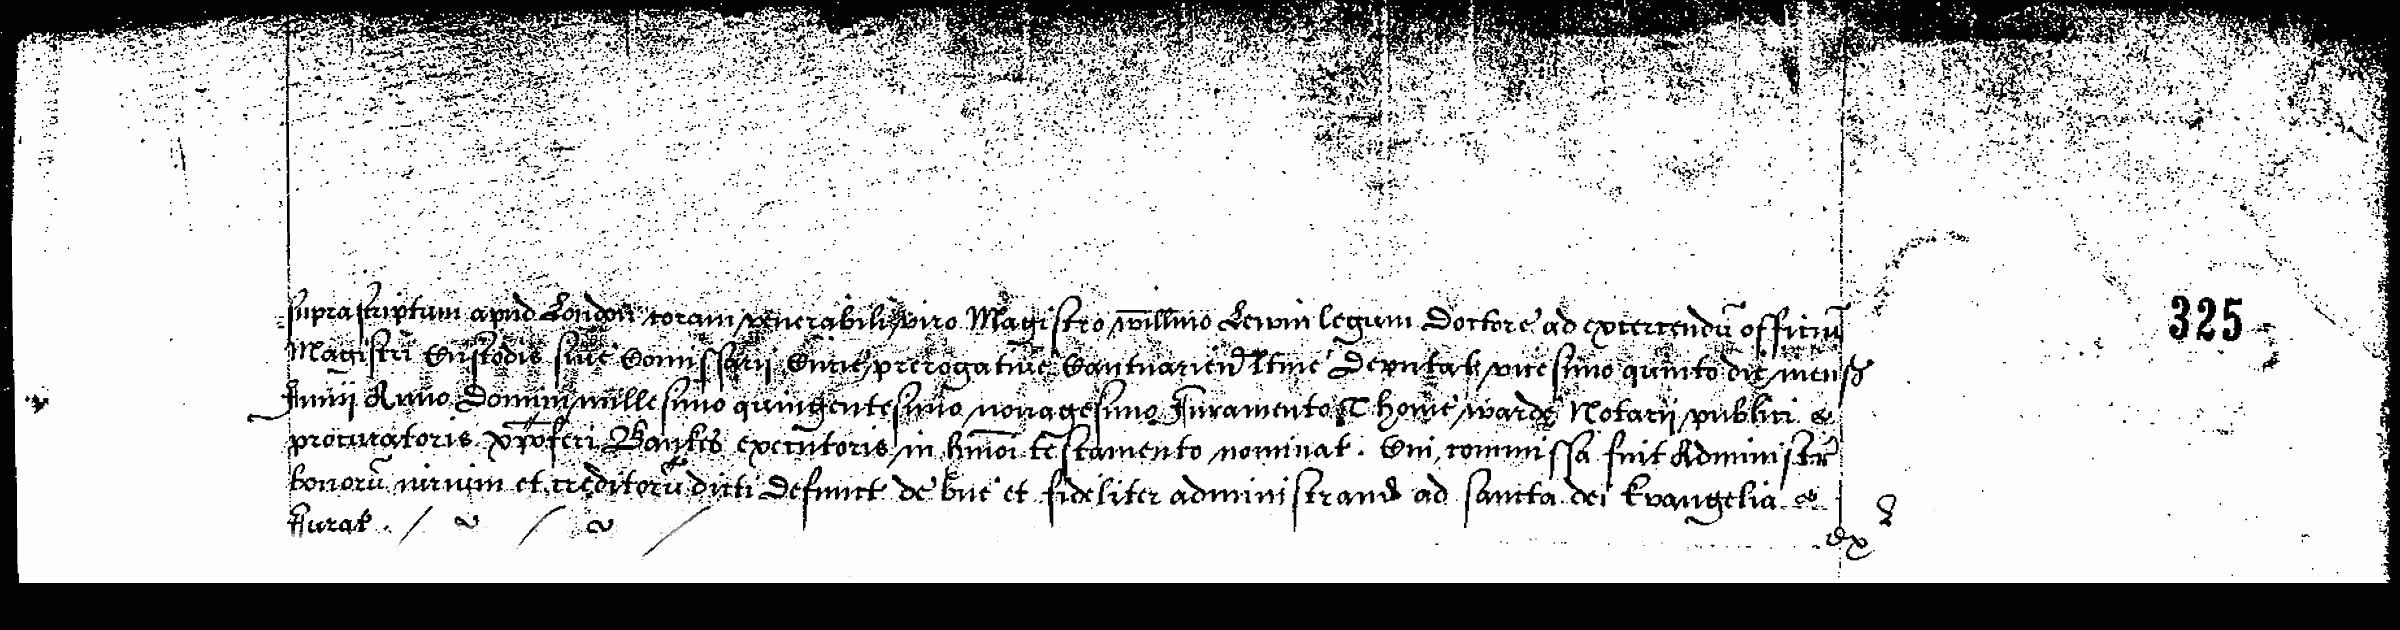 suprascriptum apud London coram venerabili viro Magistro willmo Lewin legum Doctore ad exercendū officiū
325
Magistri Custodis sive Comissarii Curie prerogative Cantuarien ltime Deputat vicesimo quinto die mens
Junij Anno Domini millesimo quingentesimo nonagesimo Juramento Thome warde Notarij publici
procuratoris xpoferi Bankes executoris in hmoi testamento nominat. Cui commissa fuit Administr
bonorū iurium et creditorū dicti Defunct de bne et fideliter administrand ad sancta dei Evangelia
Jurat.
Ex